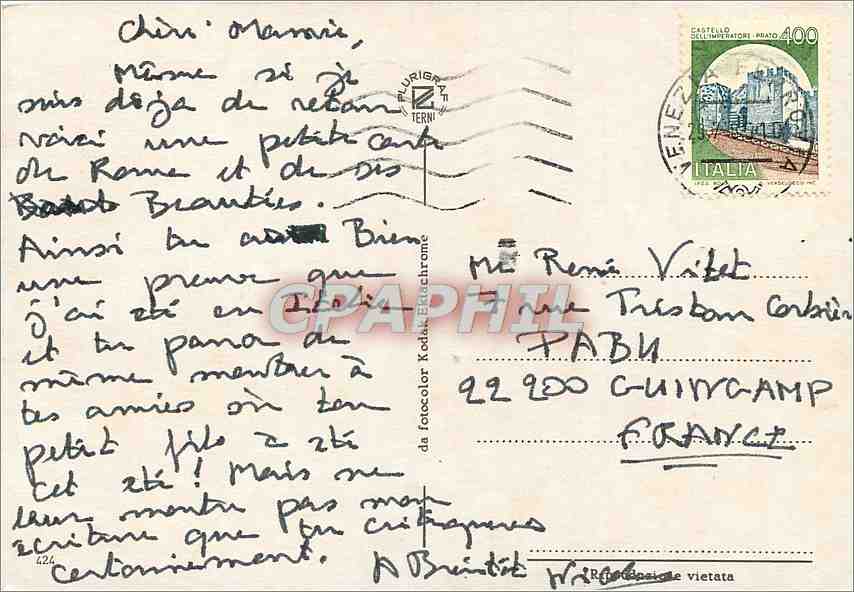 chèri Mamie,
Même si je
suis déja de retour
voici une petite carte
de Rome et de ses
Beautés.
Ainsi tu Bien
une preuve que
j'ai été en Italie
et tu pourra de
même montrer à
tes amies où ton
petit fils a été
cet été ! Mais ne
leur montre pas mon
ecriture que tu critiqueras
certainement.
A Bientôt
424
PLURIGRAF
TERNI
da fotocolor Kodak Ektachrome
CASTELLO
DELL'IMPERATORE - PRATO 400
ITALIA
VENEZIA
René Vitet
7 rue Tristan Corbière
PABU
22200 GUINGAMP
FRANCE
Riproduzione vietata
CPAPHIL